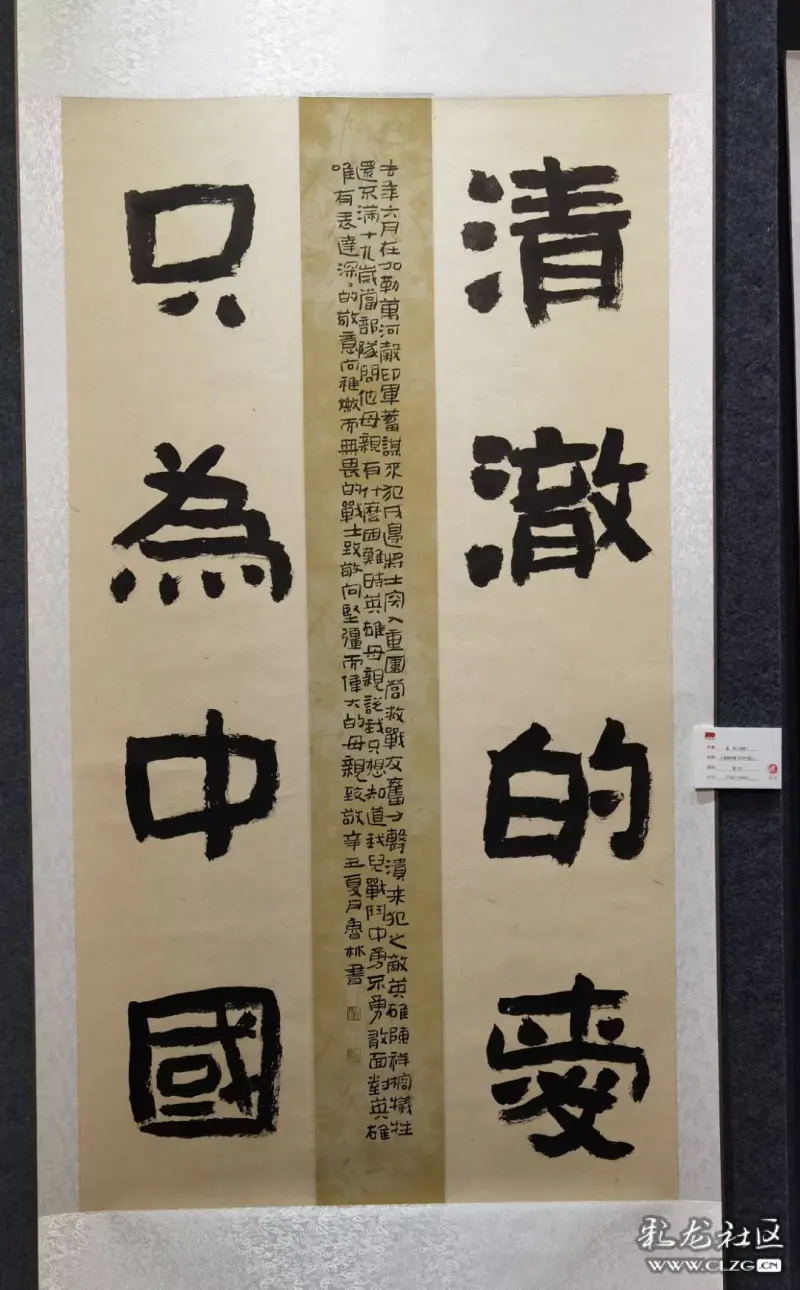 清澈的愛
去年六月在加勒萬河谷印軍蓄謀來犯戍邊將士突入重圍營救戰友奮力擊潰來犯之敵英雄陳祥榕犧牲
還不滿十九歲當部隊問他母親有什麼困難時英雄母親說我只想知道我兒戰鬥中勇不勇敢面對英雄
唯有表達深深的敬意向稚嫩而無畏的戰士致敬向堅強而偉大的母親致敬辛丑夏月魯林書
只為中國
彩龙社区
WWW.CLZG.CN